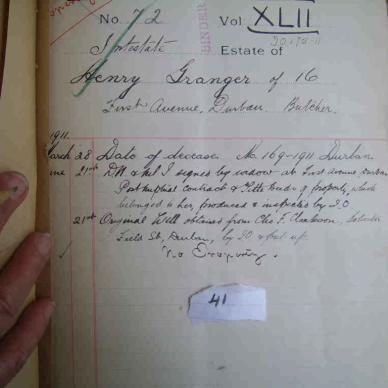 No. 72 Vol XLII
BINDER
Intestate Estate of
Henry Granger of 16
First Avenue, Durban. Butcher.
1911.
March 28 Date of decease. No. 169-1911 Durban
June 21st DN & signed by widow at First Avenue Durban
Post nuptial contract & property, which
belonged to her, produced & inspected by
21st Original Will obtained from Chs. F. Clarkson, Solicitor
Field St, Durban, by
41